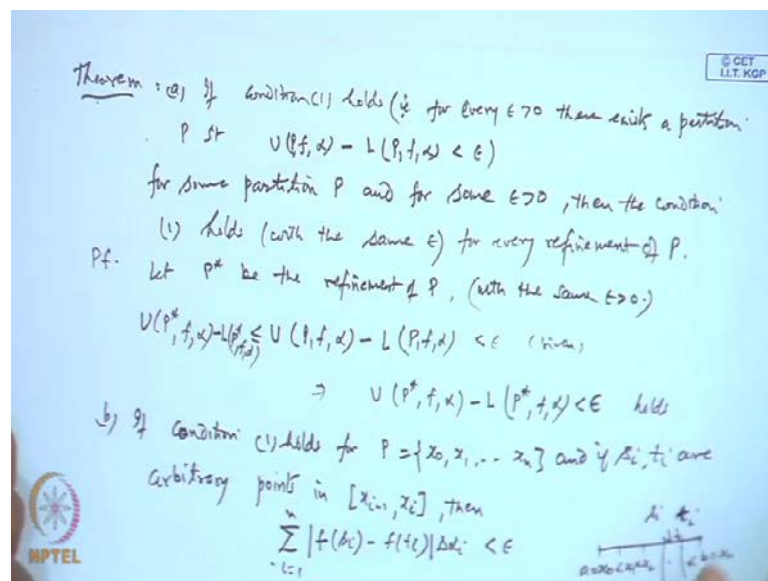 © CET
I.I.T. KGP
Theorem : (a) If condition (1) holds (ie for every ϵ>0 there exists a partition
P st U(P,f,α) - L(P,f,α) < ϵ)
for some partition P and for some ϵ>0, then the condition
(1) holds (with the same ϵ) for every refinement of P.
Pf. Let P* be the refinement of P, (with the same ϵ>0.)
U(P*,f,α)-L(P*,f,α) ≤ U(P,f,α) - L(P,f,α) < ϵ (Given)
⇒ U(P*,f,α) - L(P*,f,α) < ϵ holds
b) If Condition (1) holds for P = {x0, x1, ... xn} and if si, ti are
arbitrary points in [xi-1, xi], then
n
∑ |f(si) - f(ti)| Δαi < ϵ
i=1
si ti
NPTEL